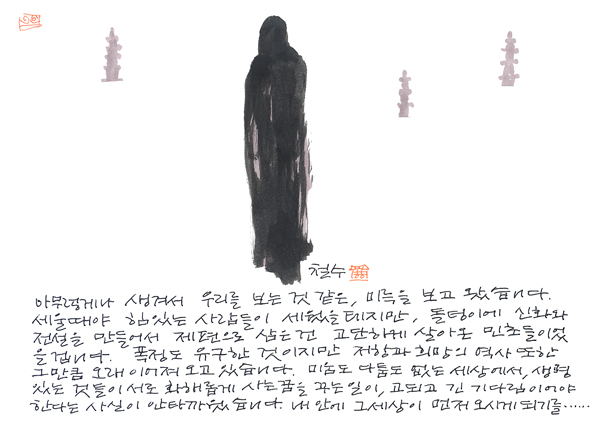 철수
아무렇게나 생겨서 우리를 보는 것 같은, 미륵을 보고 왔습니다.
세울때야 힘있는 사람들이 세웠을테지만, 돌덩이에 신화와
전설을 만들어서 제편으로 삼은건 고단하게 살아온 민초들이었
을겁니다. 폭정도 유구한 것이지만 저항과 희망의 역사 또한
그만큼 오래 이어져 오고 있습니다. 미움도 다툼도 없는 세상에서, 생명
있는 것들이 서로 화해롭게 사는꿈을 꾸는일이, 고되고 긴 기다림이어야
한다는 사실이 안타까웠습니다. 내 안에 그세상이 먼저 오시게 되기를......